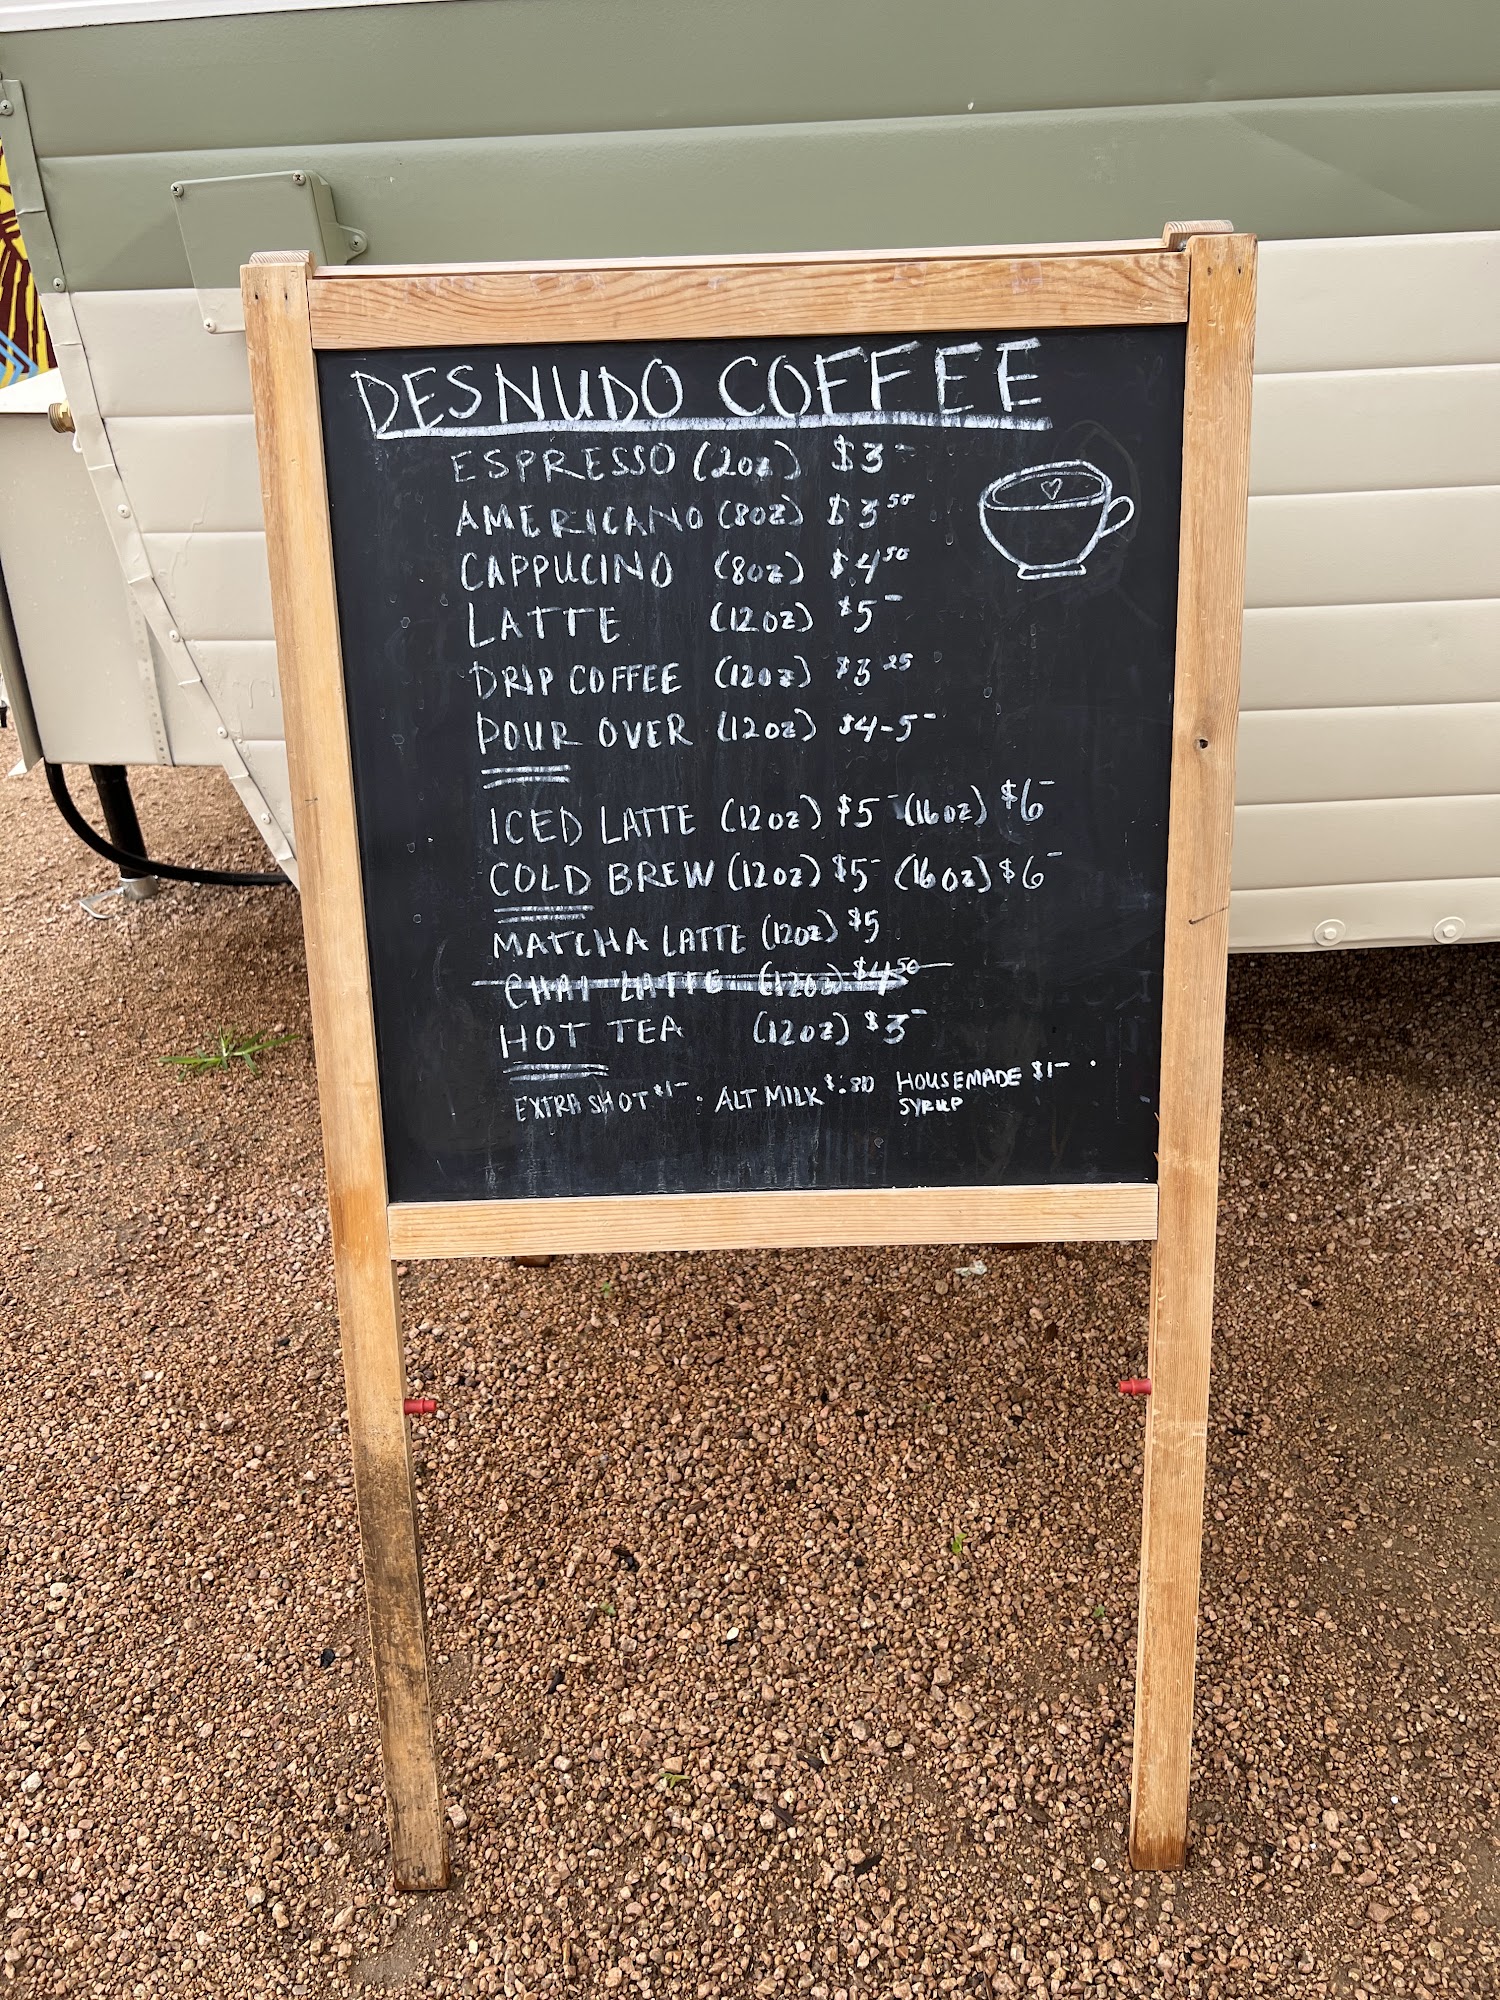 DESNUDO COFFEE
ESPRESSO (2oz) $3-
AMERICANO (8oz) $3.50
CAPPUCINO (8oz) $4.50
LATTE (12oz) $5-
DRIP COFFEE (12oz) $3.25
POUR OVER (12oz) $4-5-
ICED LATTE (12oz) $5- (16oz) $6-
COLD BREW (12oz) $5- (16oz) $6-
MATCHA LATTE (12oz) $5
CHAI LATTE (12oz) $4.50
HOT TEA (12oz) $3-
EXTRA SHOT $1- . ALT MILK $.80 HOUSEMADE $1- .
SYRUP